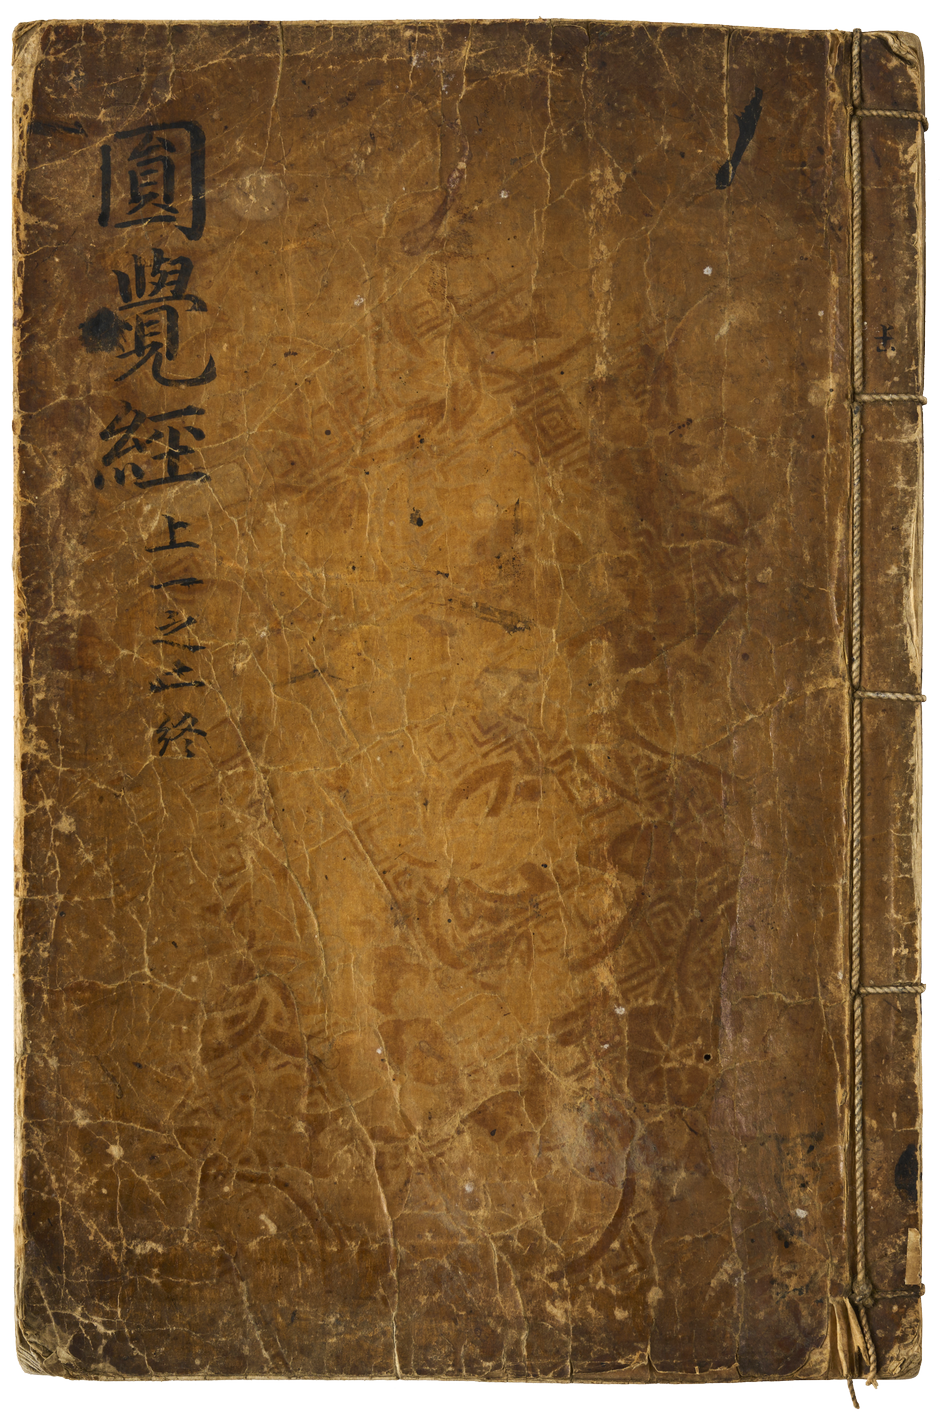 圓覺經上一之二終